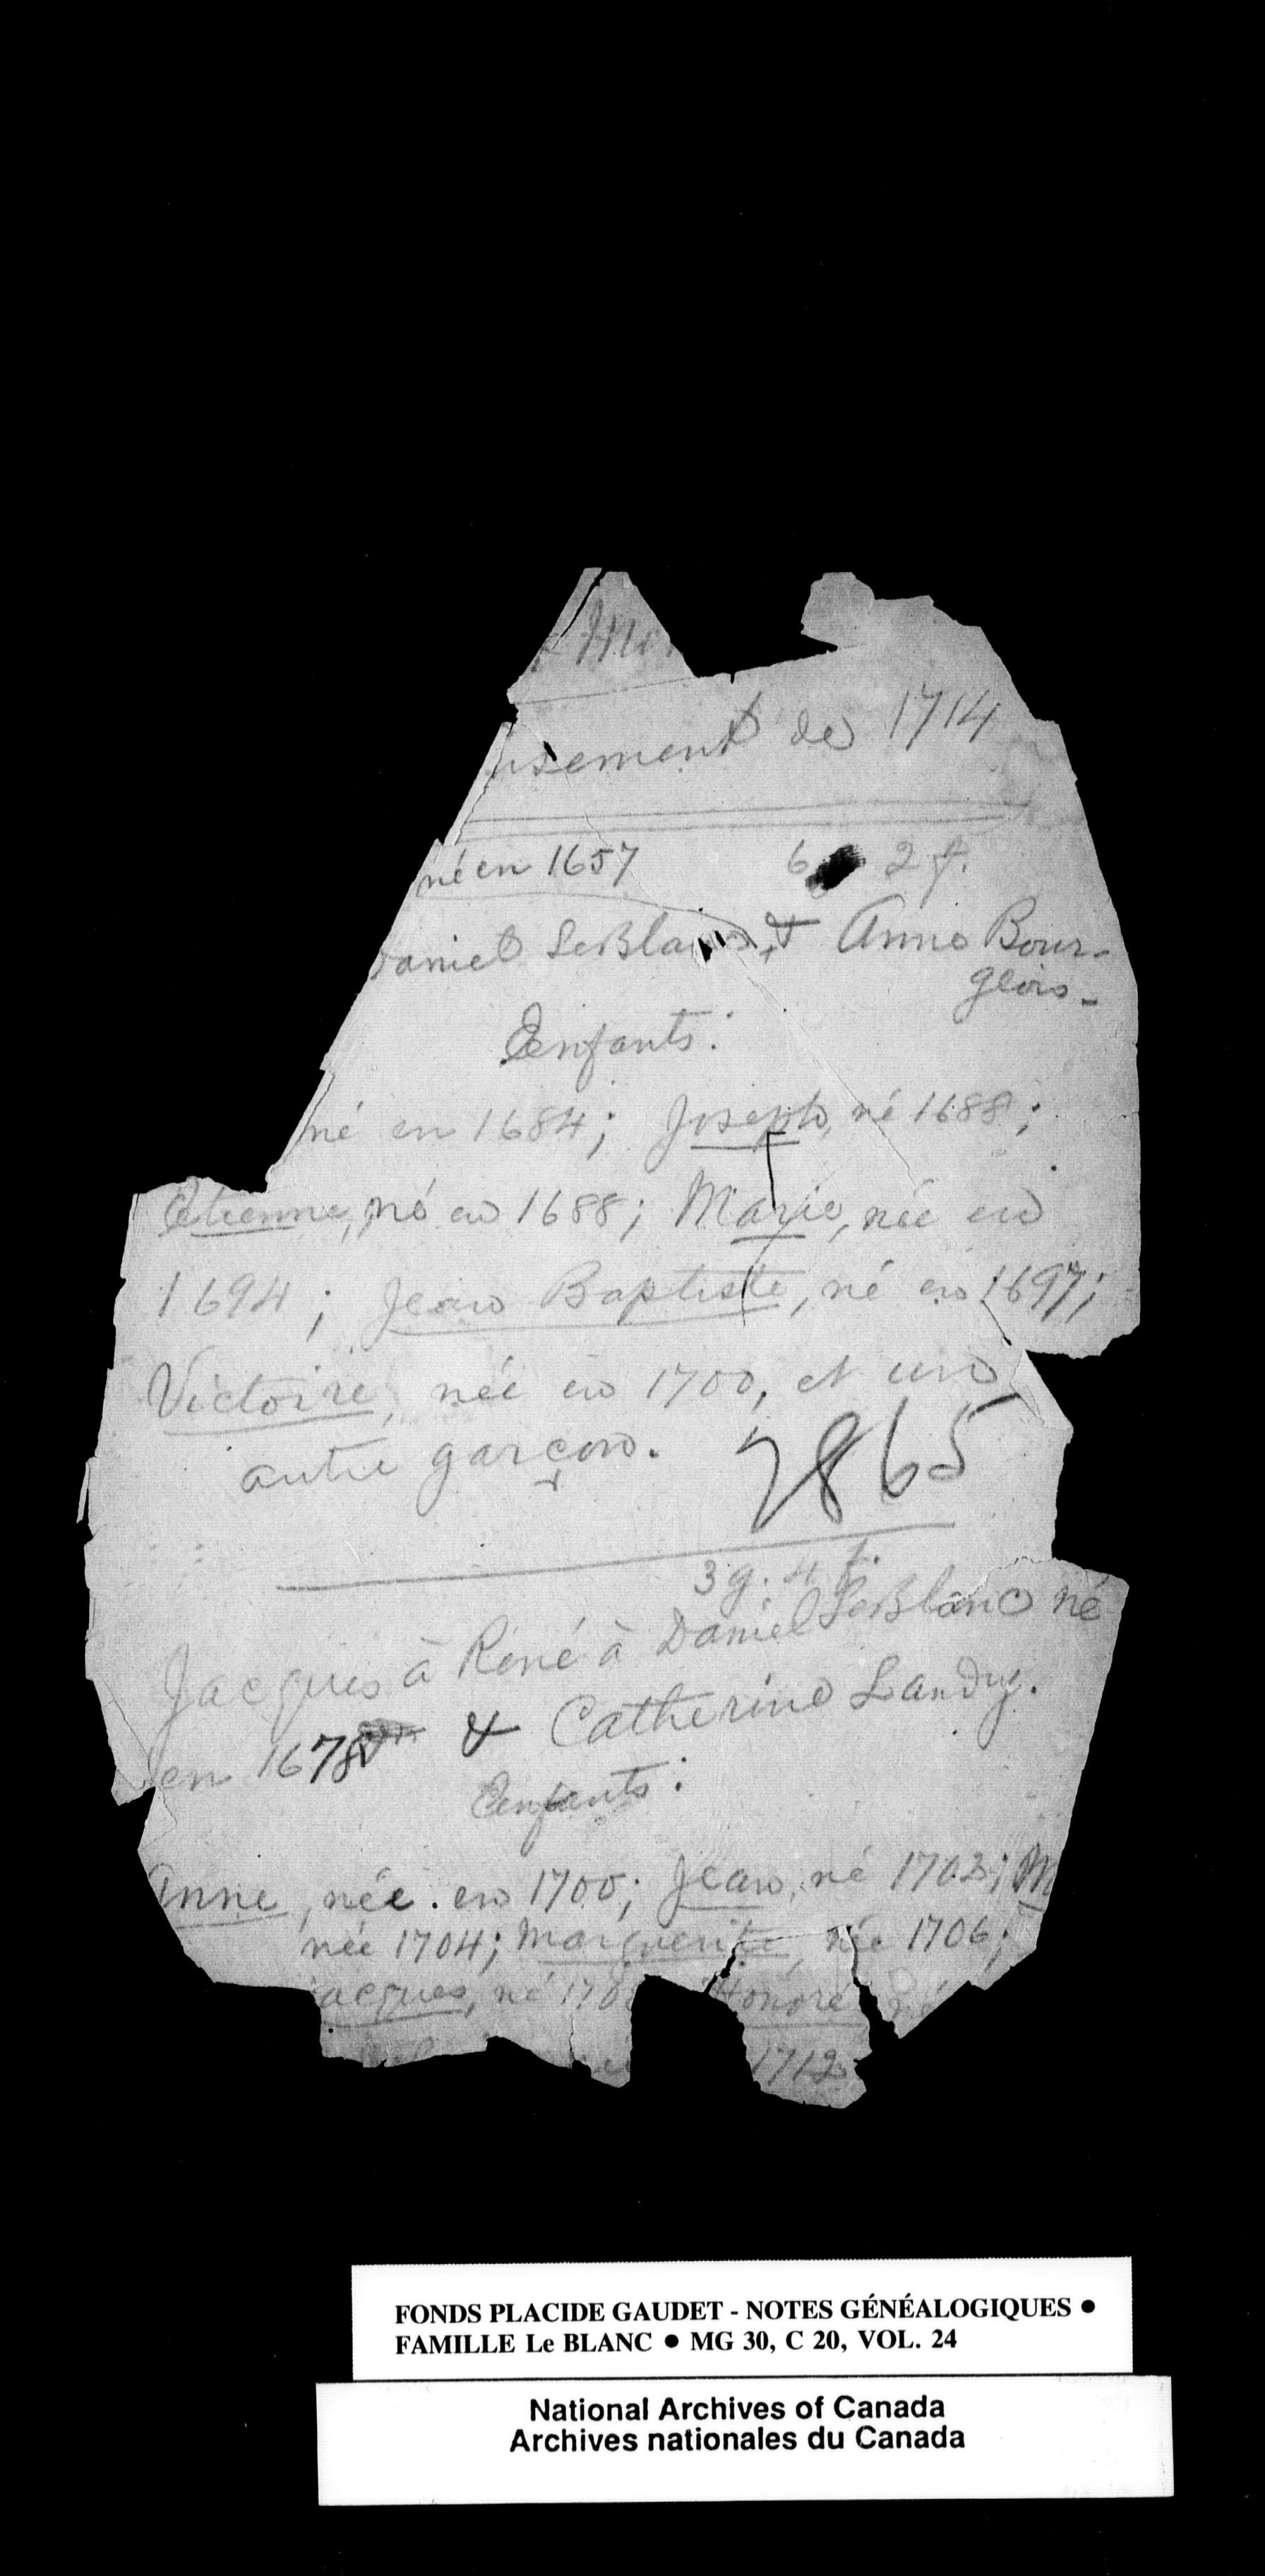 nsement de 1714
né en 1657 6 2 f.
aniel LeBlanc & Anne Bour-
geois-
Enfants:
né en 1684; Joseph, né 1688;
Etienne, né en 1688; Marie, née en
1694; Jean Baptiste, né en 1697;
Victoire, née en 1700, et un
autre garçon. 2865
3 g. 4 f.
Jacques à René à Daniel LeBlanc né
en 1678 & Catherine Landry.
Enfants:
Anne, née en 1700; Jean, né 1702; M
née 1704; Marguerite, née 1706;
acques, né 170 Honoré né
1712
FONDS PLACIDE GAUDET - NOTES GÉNÉALOGIQUES ●
FAMILLE Le BLANC ● MG 30, C 20, VOL. 24
National Archives of Canada
Archives nationales du Canada